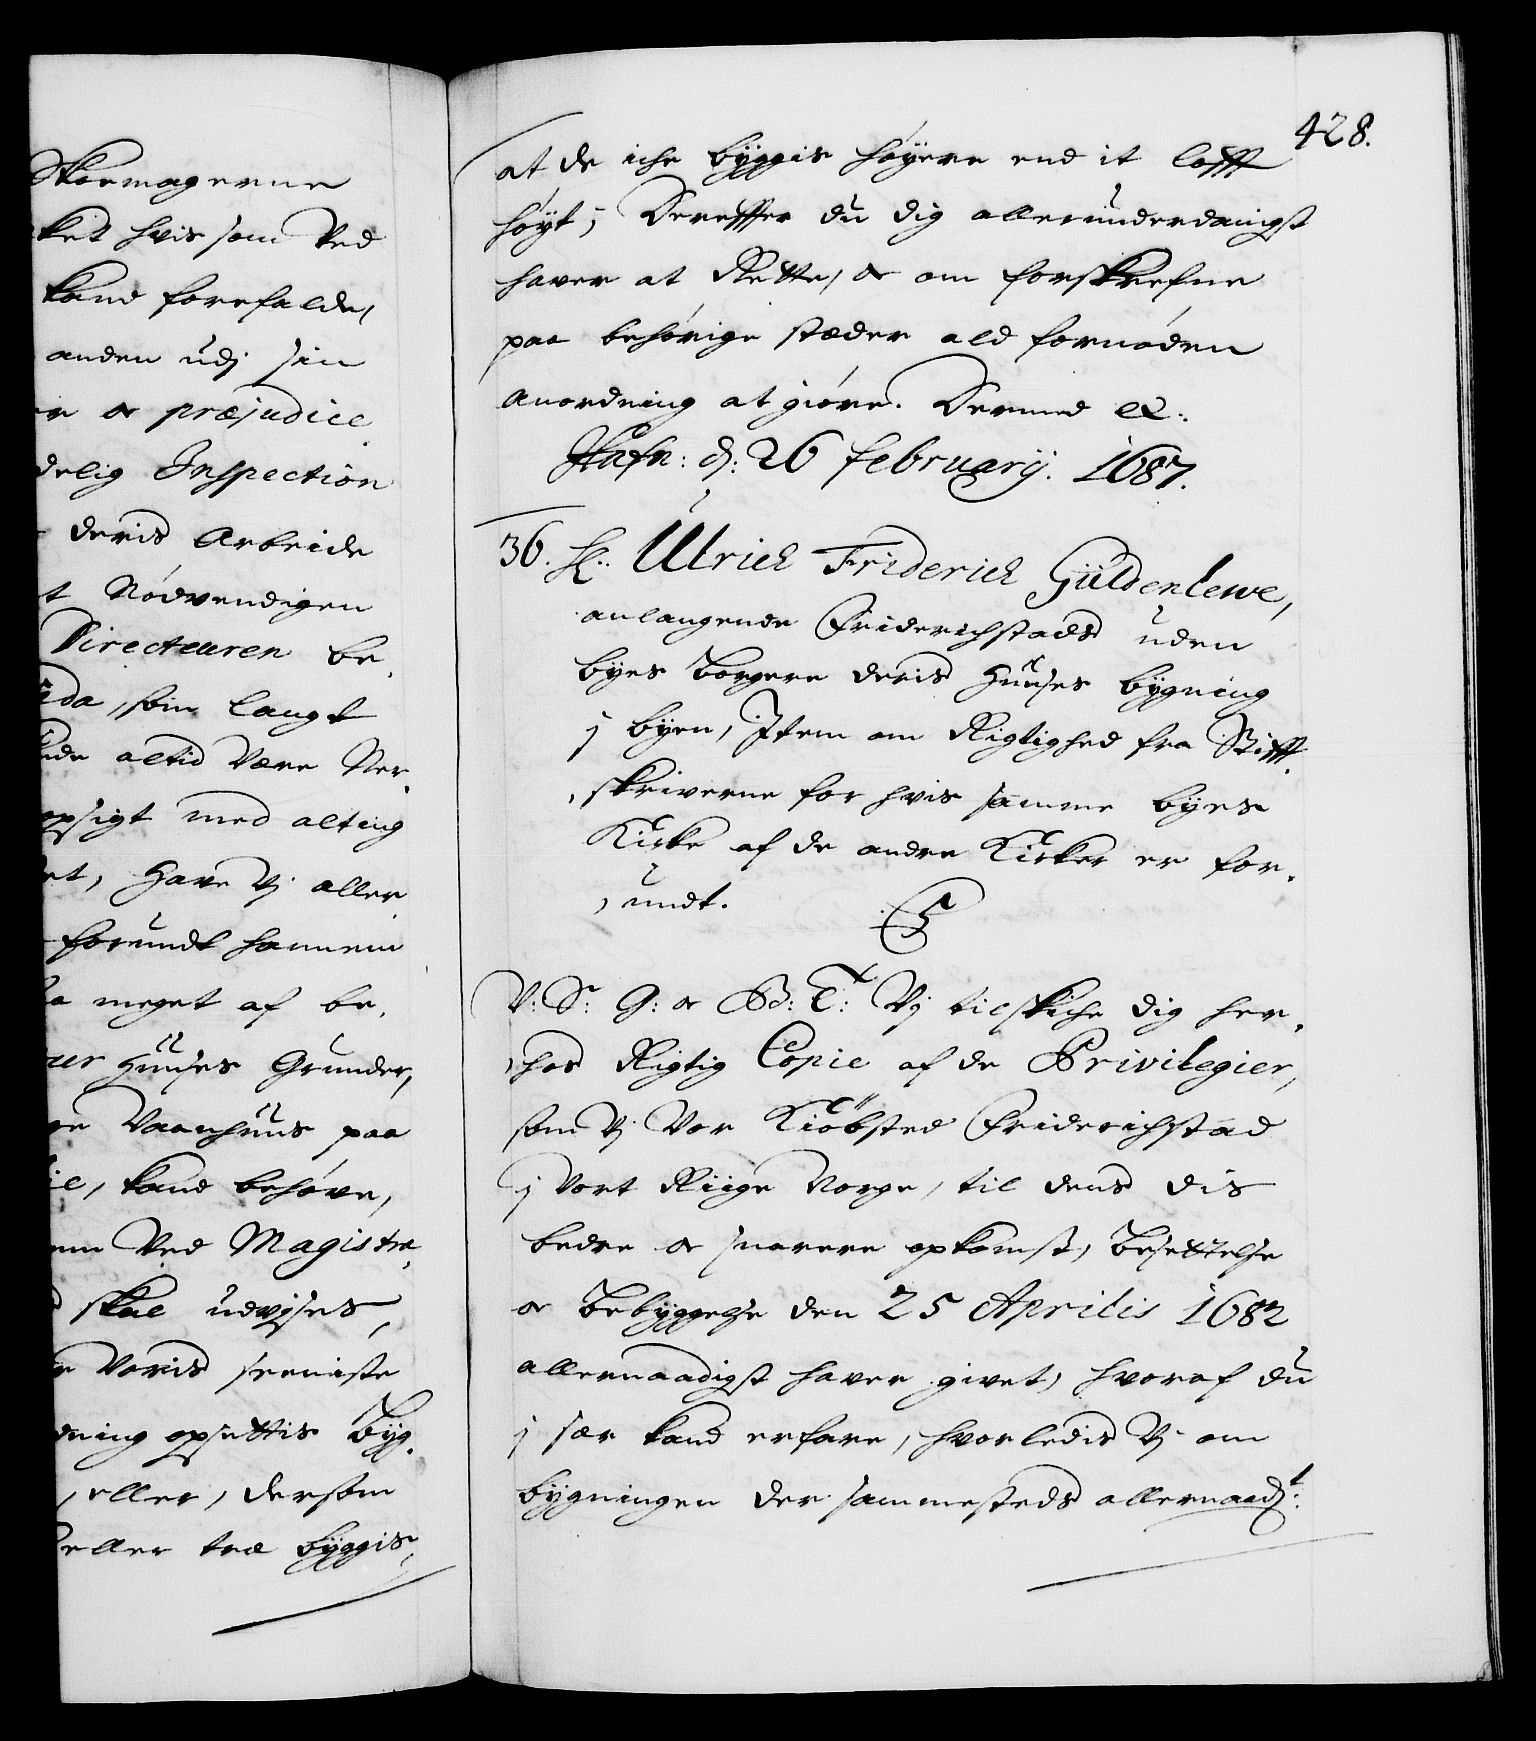 Skoemagerne
ket hvis som Ved
kand forefalde,
anden udj sin
er oc præjudice
delig Inspection
deris Arbeide
t Nödvendigen
Directeuren be¸
ida, som langt
ude altid Være Ner¸
opsigt med alting
et, Have Vj aller¸
forundt hannem
a meget af be¸
ur Huuses Grunder,
ge Vaanhuus paa
ie, kand behøve,
em Ved Magistra¸
skal udvjses,
r Voris seeniste
dning opsettis Byg¸
, eller, dersom
eller træ byggis,
428.
at de iche byggis høyere end it lofft
høyt; Dereffter du dig allerunderdanigst
haver at Rette, oc om forskrefne
paa behörige stæder ald fornøden
anordning at giöre. Dermed &:
Hafn: d: 26 february. 1687.
36. H: Ulrich Friderich Güldenlewe,
anlangende Friderichstads uden
byes Borgere deris Huuses bygning
j byen, Item om Rigtighed fra Stifft¸
¸skriverne for hvis samme byes
Kirke af de andre Kirker er for¸
¸undt.
C5
V: Sr. G: oc B: T: Vj tilskiche dig her¸
¸hos Rigtig Copie af de Privilegier,
som Vj Vor Kiöbsted Friderichstad
j Vort Riige Norge, til dens dis
bedre oc snarere opkomst, Besettelse
oc Bebyggelse den 25 Aprilis 1682
allernaadigst haver givet, hvoraf du
j sær kand erfare, hvorledis Vj om
bygningen der sammesteds allernaadt: